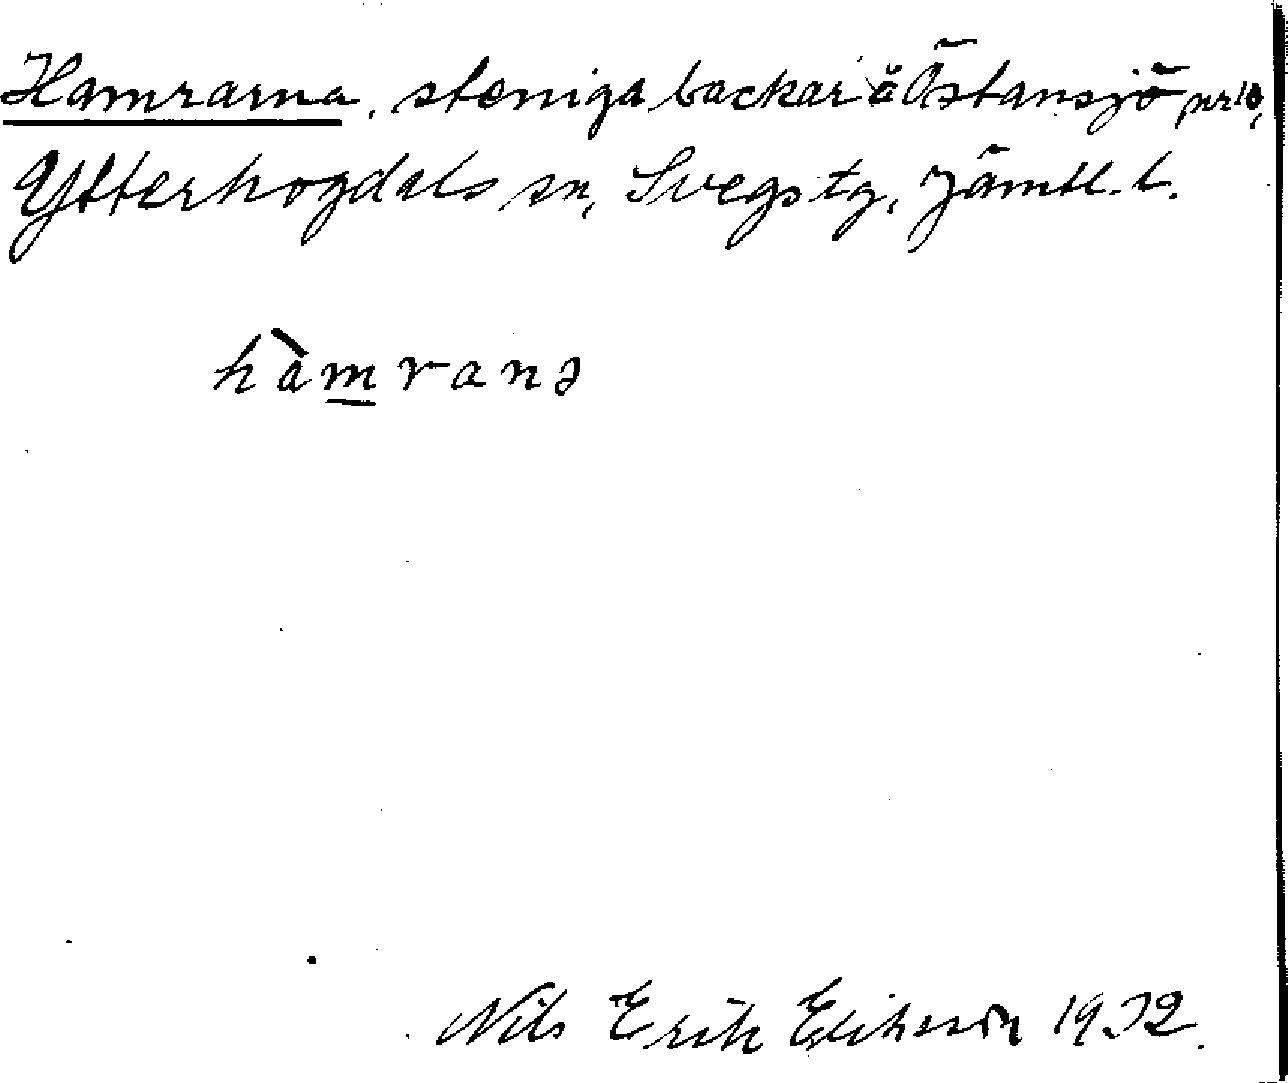 Hamrarna, steniga backar å Östansjö nr 10,
Ytterhogdals sn, Svegs tg, Jämtl. l.
hàm̲ranə
Nils Erik Erikson 1932.